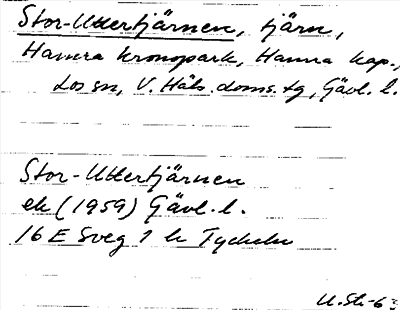 Stor-Uttertjärnen, tjärn,
Hamra kronopark, Hamra kap.,
Los sn, V. Häls. doms. tg, Gävl. l.
Stor-Uttertjärnen
ek (1959) Gävl. l.
16 E Sveg 1 h Tyckeln